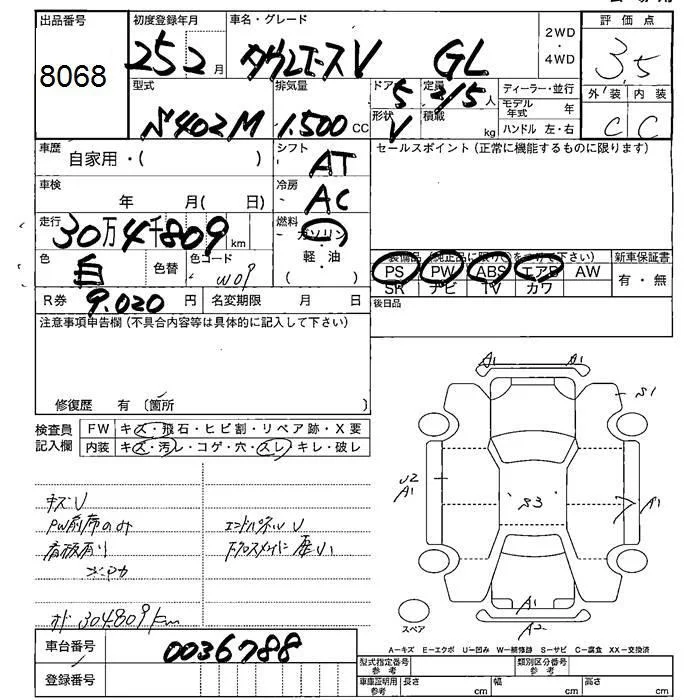 出品番号
8068
初度登録年月
25 2 月
車名・グレード
タウンエースV GL
2WD
・
4WD
評価点
3.5
外装 内装
C C
型式
S402M
排気量
1.500 CC
ドア 5
形状 V
定員 2/5 人
積載 kg
ディーラー・並行
モデル年式 年
ハンドル 左・右
車歴
自家用・( )
シフト
AT
セールスポイント (正常に機能するものに限ります)
車検
年 月( 日)
冷房
AC
走行
30万4千809 km
燃料
ガソリン
軽・油
色
白
色替
色コード
W09
装備品 (純正品に限り○をつけて下さい)
PS PW ABS エアB AW
SR ナビ TV カワ
新車保証書
有・無
R券 9.020 円
名変期限 月 日
後日品
注意事項申告欄(不具合内容等は具体的に記入して下さい)
修復歴 有 〔箇所 〕
検査員
記入欄
FW キズ・飛石・ヒビ割・リペア跡・X要
内装 キズ・汚レ・コゲ・穴・スレ・キレ・破レ
キズU
PW前席のみ
看板有り
エンドパネルU
下クロスメイト
オド 304.809km
A1 A1
S1
U2
A1
S3
A1
A1
A2
スペア
A-キズ E-エクボ U-凹み W-補修跡 S-サビ C-腐食 XX-交換済
車台番号
0036788
登録番号
型式指定番号
参考
類別区分番号
参考
車庫証明用
参考
長さ cm
幅 cm
高さ cm